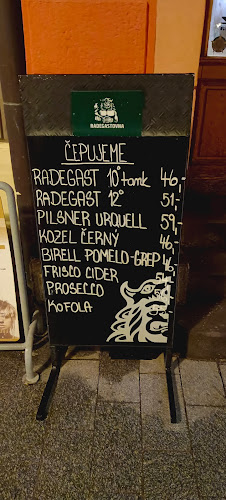 RADEGASTOVNA
ČEPUJEME
RADEGAST 10° tank 46,-
RADEGAST 12° 51,-
PILSNER URQUELL 59,-
KOZEL ČERNÝ 46,-
BIRELL POMELO-GREP 46,-
FRISCO CIDER
PROSECCO
KOFOLA